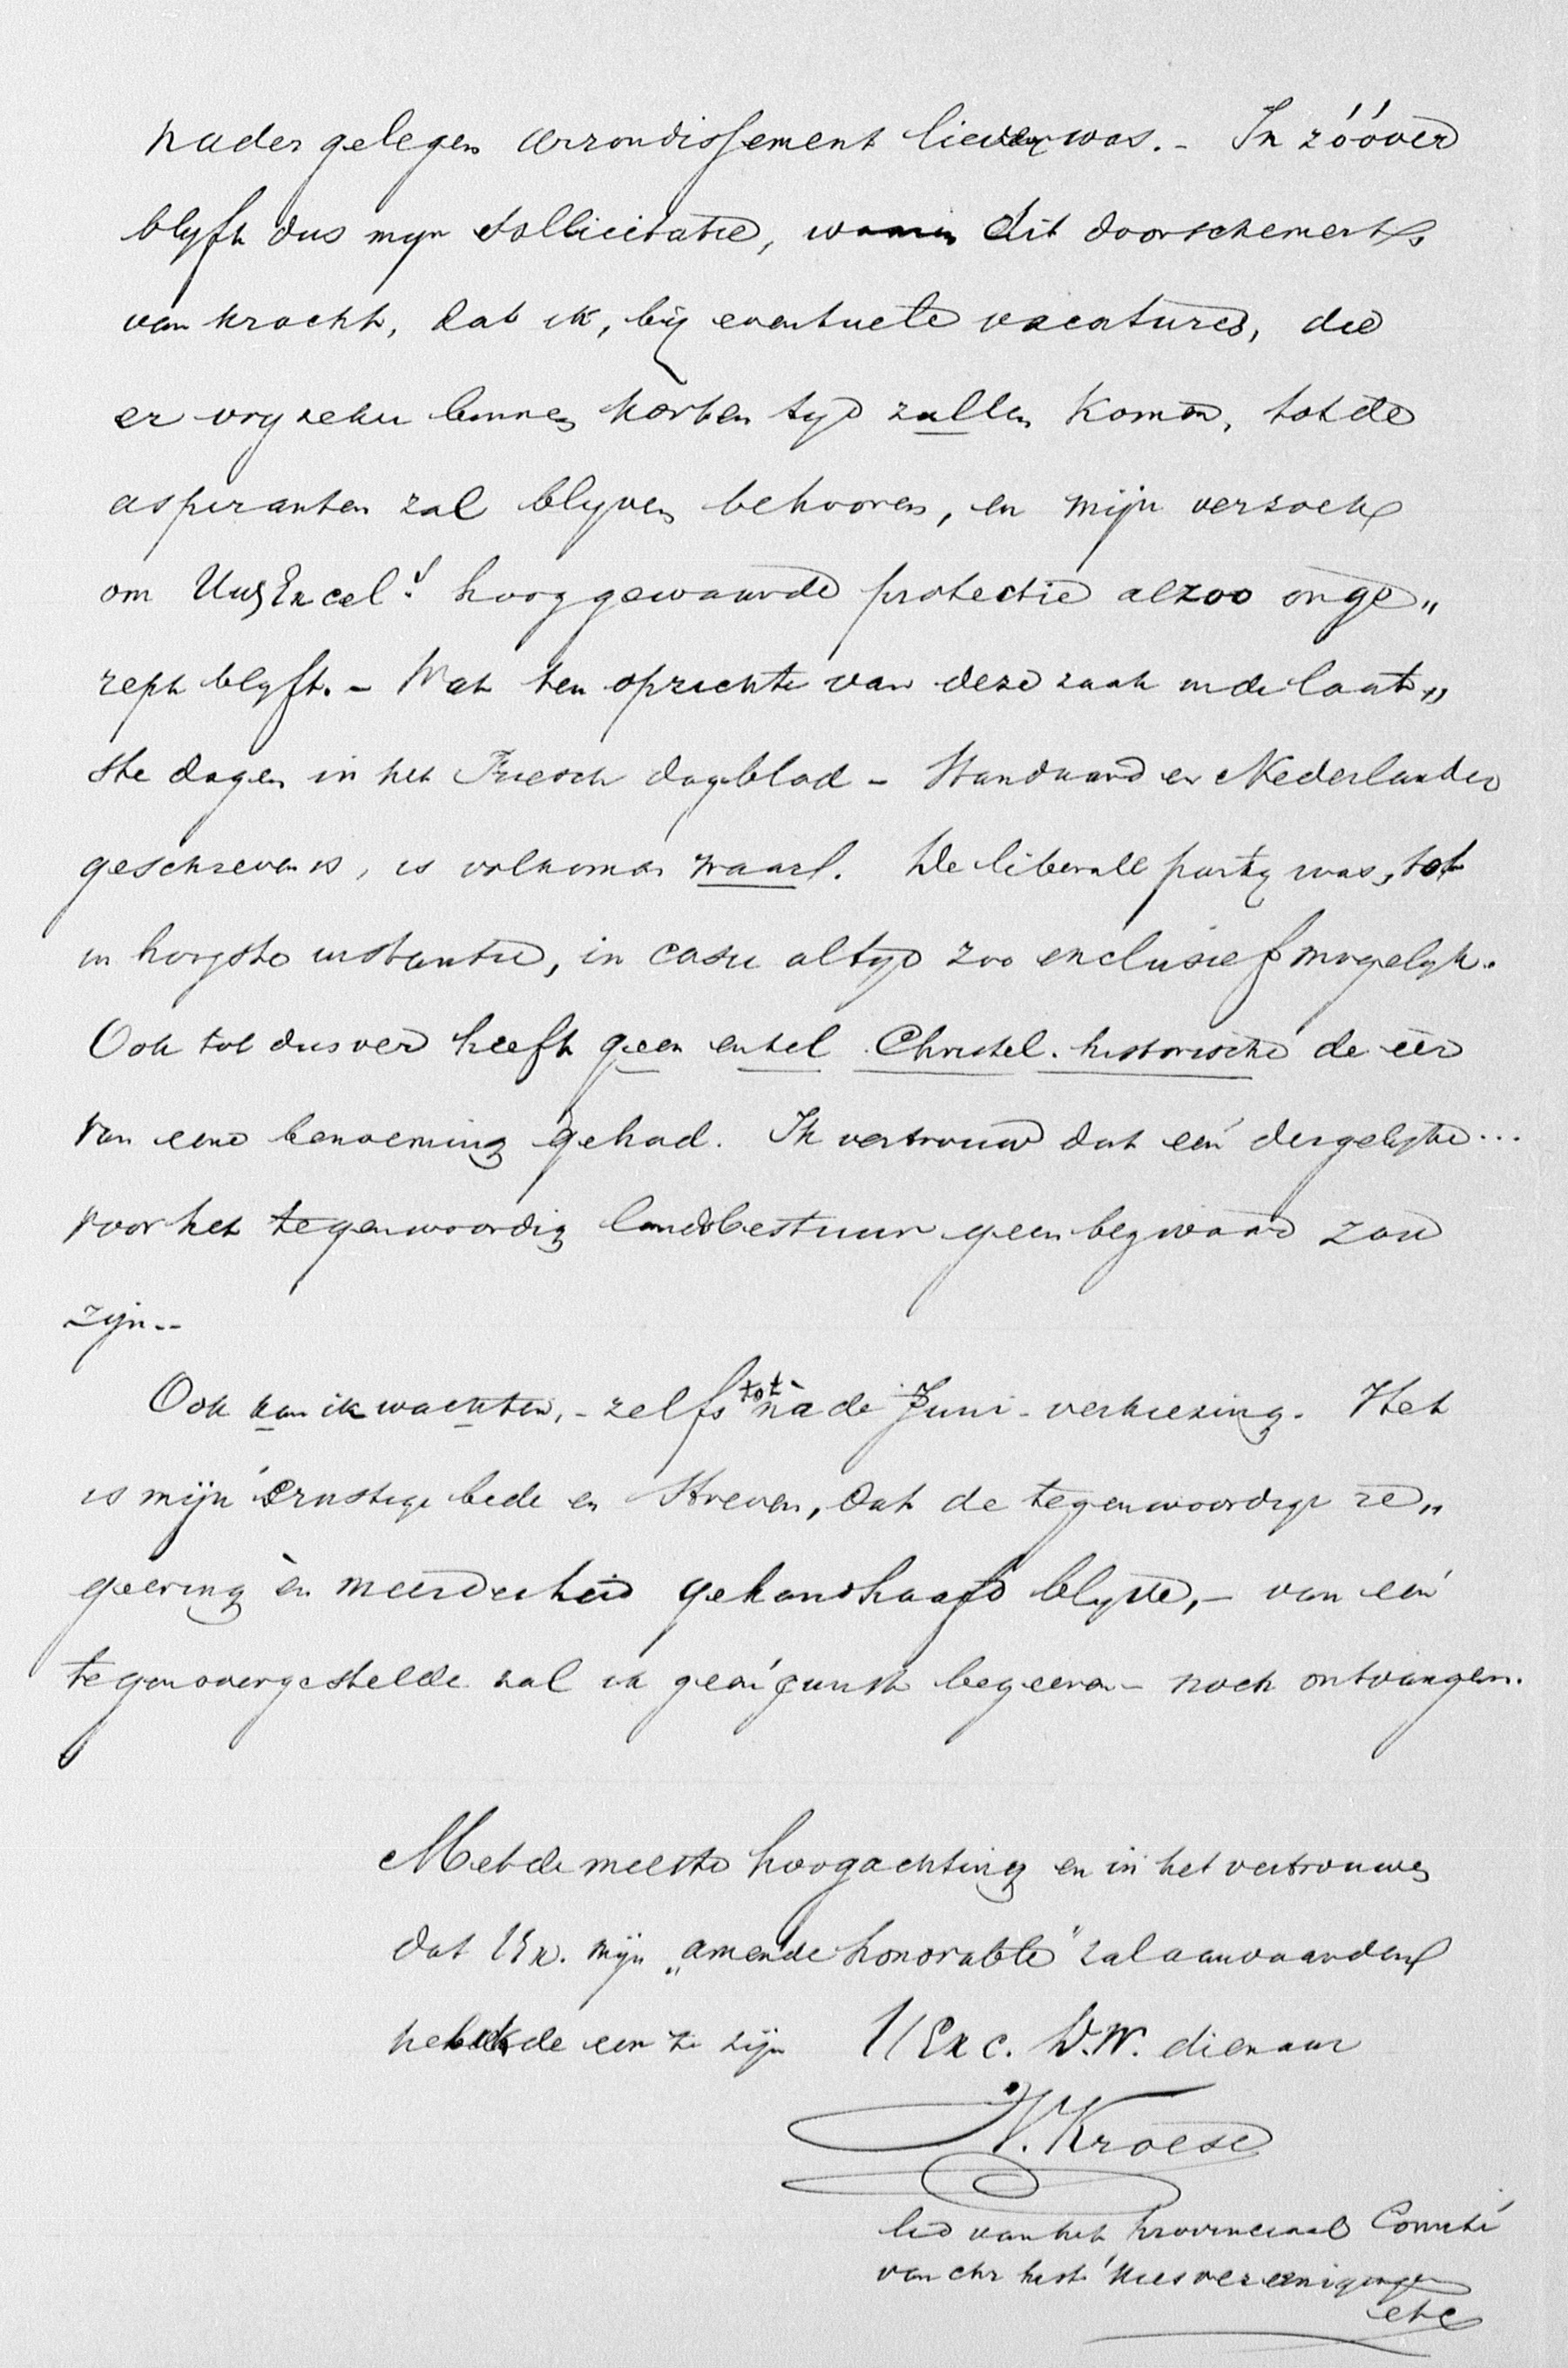 nader gelegen arrondissement liever was. - In zóóver
blyft dus myn sollicitatie, waarin dit doorschemert,
van kracht, dat ik, bij eventueele vacatures, die
er vry zeker binnen korten tyd zullen komen, tot de
aspiranten zal blyven behooren, en mijn verzoek
om Uw Excels hooggewaarde protectie alzoo onge„
rept blyft. - Wat ten opzichte van deze zaak in de laat„
ste dagen in het Friesch dagblad - Standaard en Nederlander
geschreven is, is volkomen waar. De liberale party was, tot
in hoogste instantie, in casu altyd zoo exclusief mogelyk.
Ook tot dusver heeft geen enkel Christel. historische de eer
van eene benoeming gehad. Ik vertrouw dat eén dergelyke...
voor het tegenwoordig landsbestuur geen bezwaar zou
zijn. -
Ook kan ik wachten, - zelfs tot nà de Juni-verkiezing. Het
is mijn ernstige bede en streven, dat de tegenwoordige re„
geering èn meerderheid gehandhaafd blyve, - van eén
tegenovergestelde zal ik geen gunst begeeren - noch ontvangen.
Met de meeste hoogachting en in het vertrouwen
dat UEx. mijn „amende honorable" zal aanvaarden
heb ik de eer te zijn UExc. D.W. dienaar
N. Kroese
lid van het Provinciaal Comité
van chr hist. Kiesvereenigingen
etc